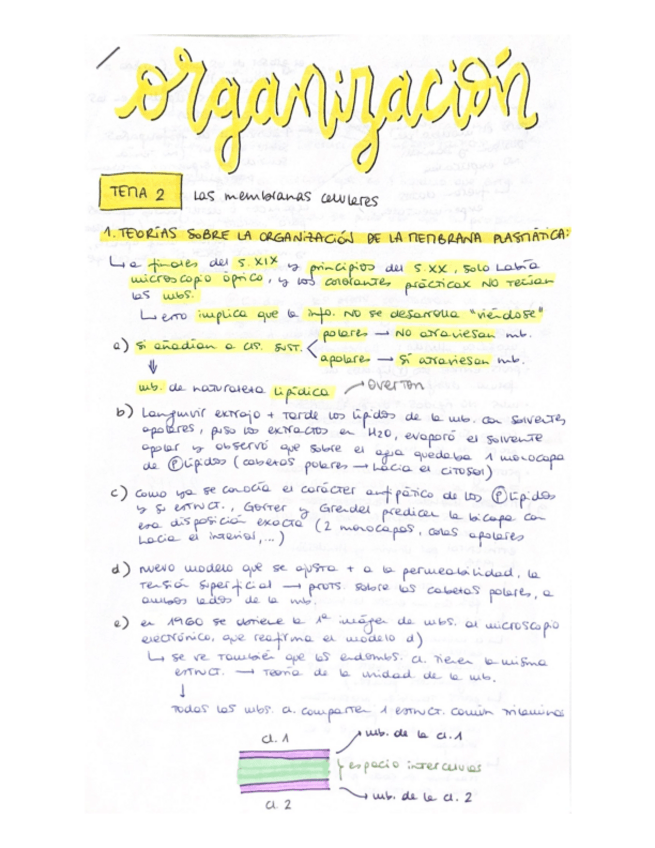 organización
TEMA 2 Las membranas celulares
1. TEORÍAS SOBRE LA ORGANIZACIÓN DE LA MEMBRANA PLASMÁTICA:
↳ a finales del S. XIX y principios del S. XX, solo había
microscopio óptico, y los colorantes prácticax NO teñían
las mbs.
↳ esto implica que la info. NO se desarrolla "viéndose"
a) Si añadían a cls. sust. < polares → NO atraviesan mb.
apolares → Sí atraviesan mb.
⇓
mb. de naturaleza lipídica → OVERTON
b) Langmuir extrajo + tarde los lípidos de la mb. con solventes
apolares, puso los extractos en H2O, evaporó el solvente
apolar y observó que sobre el agua quedaba 1 monocapa
de Ⓟlípidos (cabezas polares → hacia el citosol)
c) como ya se conocía el carácter anfipático de los Ⓟlípidos
y su estruct., Gorter y Grendel predicen la bicapa con
esa disposición exacta (2 monocapas, colas apolares
hacia el interior,...)
d) nuevo modelo que se ajusta + a la permeabilidad, la
tensión superficial → prots. sobre las cabezas polares, a
ambos lados de la mb.
e) en 1960 se obtiene la 1ª imágen de mbs. al microscopio
electrónico, que reafirma el modelo d)
↳ se ve también que las endombs. cl. tienen la misma
estruct. → Teoría de la unidad de la mb.
↓
Todas las mbs. cl. comparten 1 estruct. común trilaminar
cl. 1
mb. de la cl. 1
espacio intercelular
mb. de la cl. 2
cl. 2